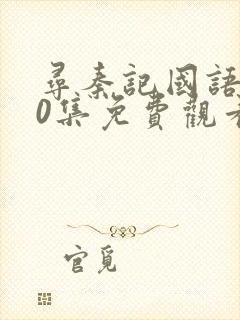 尋秦記國語
0集免費觀看
官覓